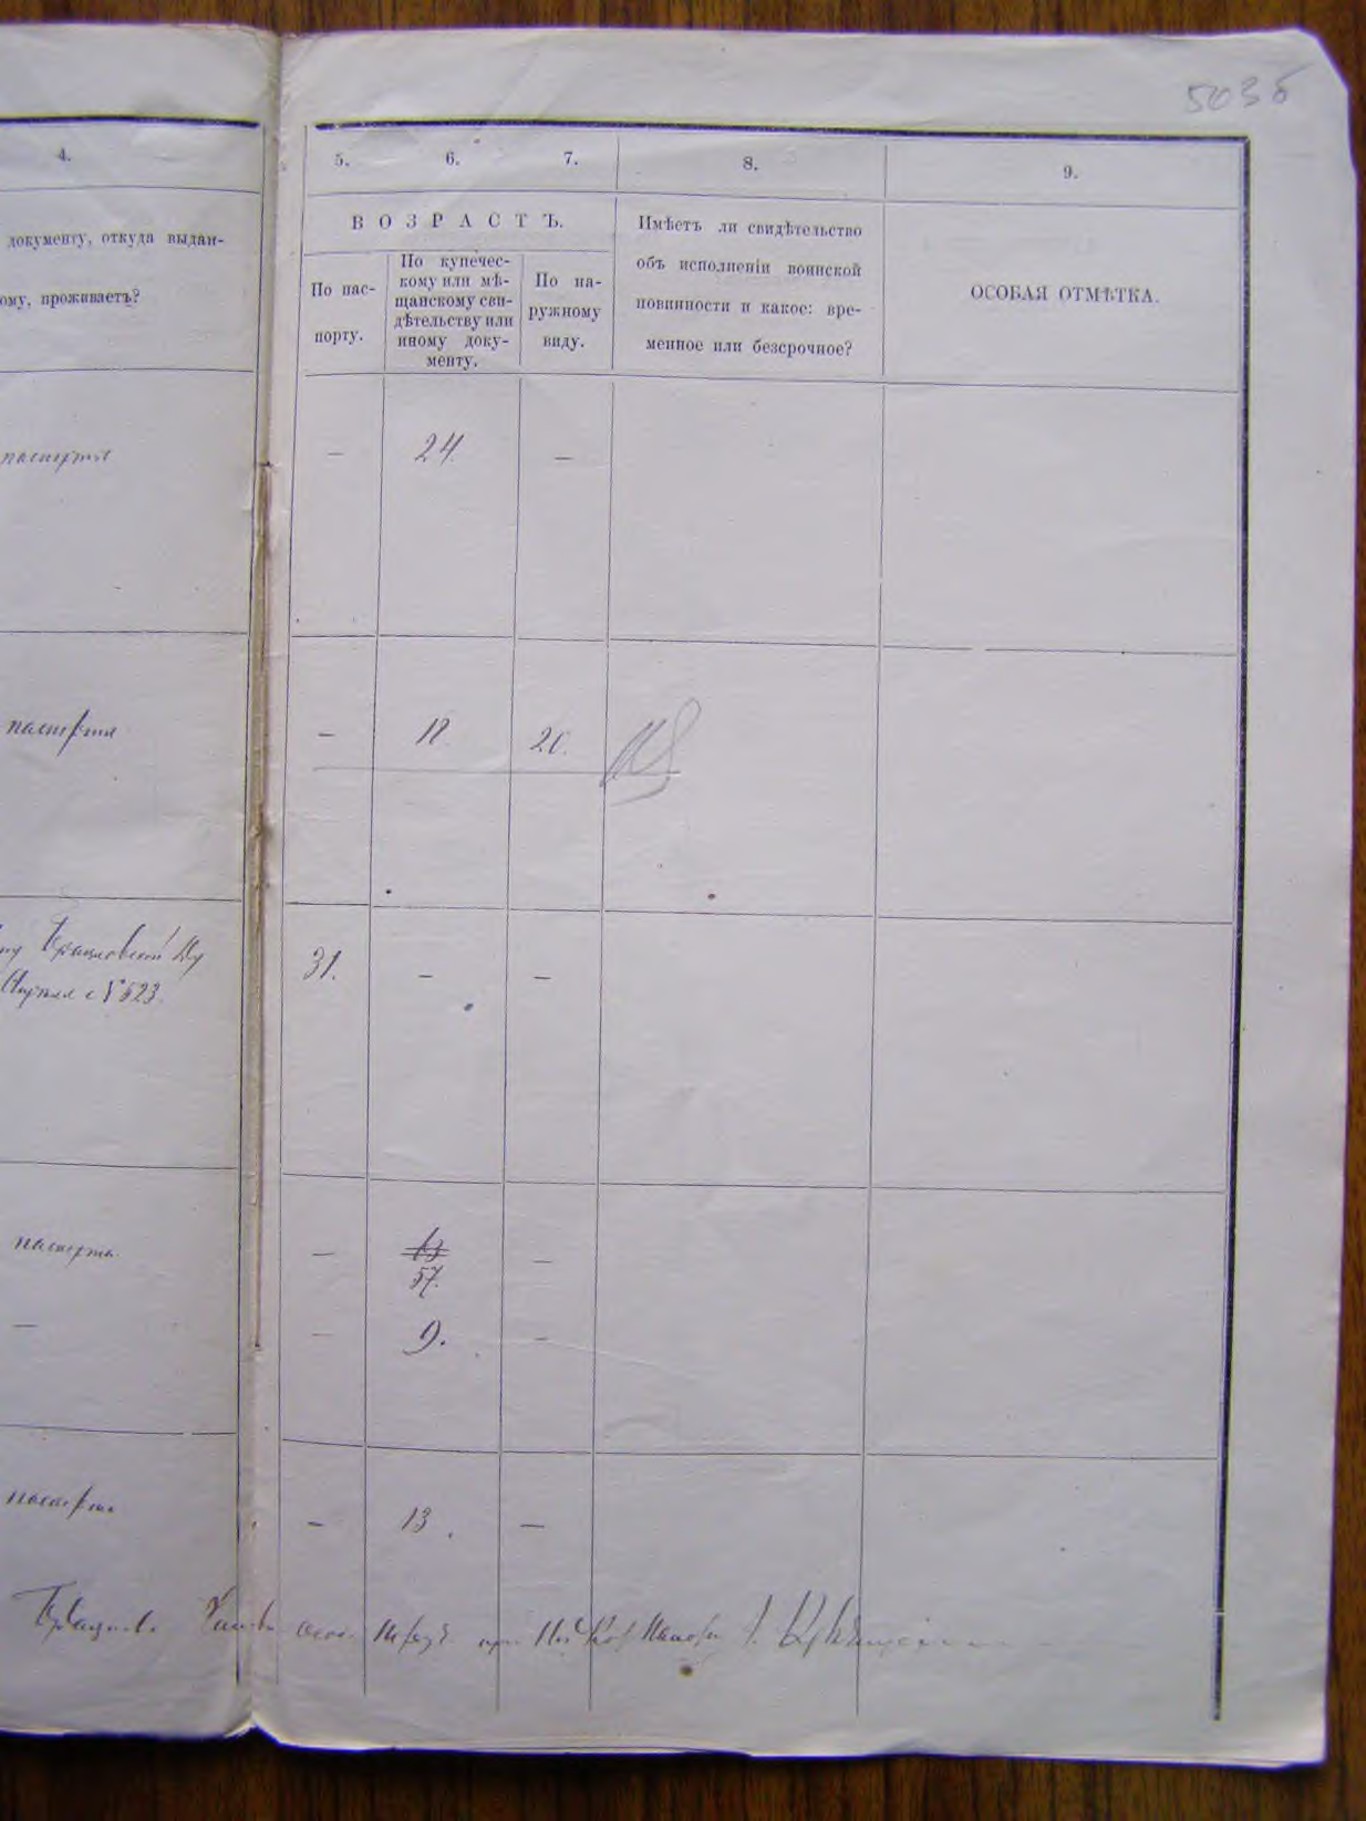 503б
4.
5.
6.
7.
8.
9.
документу, откуда выдан-
ому, проживаетъ?
ВОЗРАСТЪ.
По пас-
порту.
По купечес-
кому или мѣ-
щанскому сви-
дѣтельству или
иному доку-
менту.
По на-
ружному
виду.
Имѣетъ ли свидѣтельство
объ исполненіи воинской
повинности и какое: вре-
менное или безсрочное?
ОСОБАЯ ОТМѢТКА.
паспорта
— 24. —
паспорта
— 20.
31. — —
с № 523.
паспорта
— —
57.
— — 9. —
паспорта
— 13. —